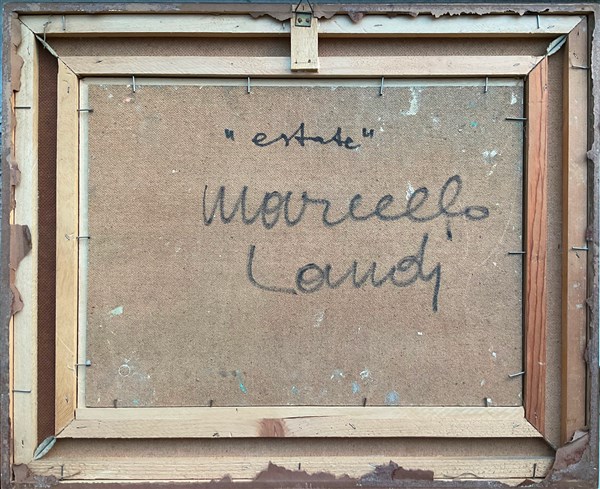 "estate"
Marcello
Landi